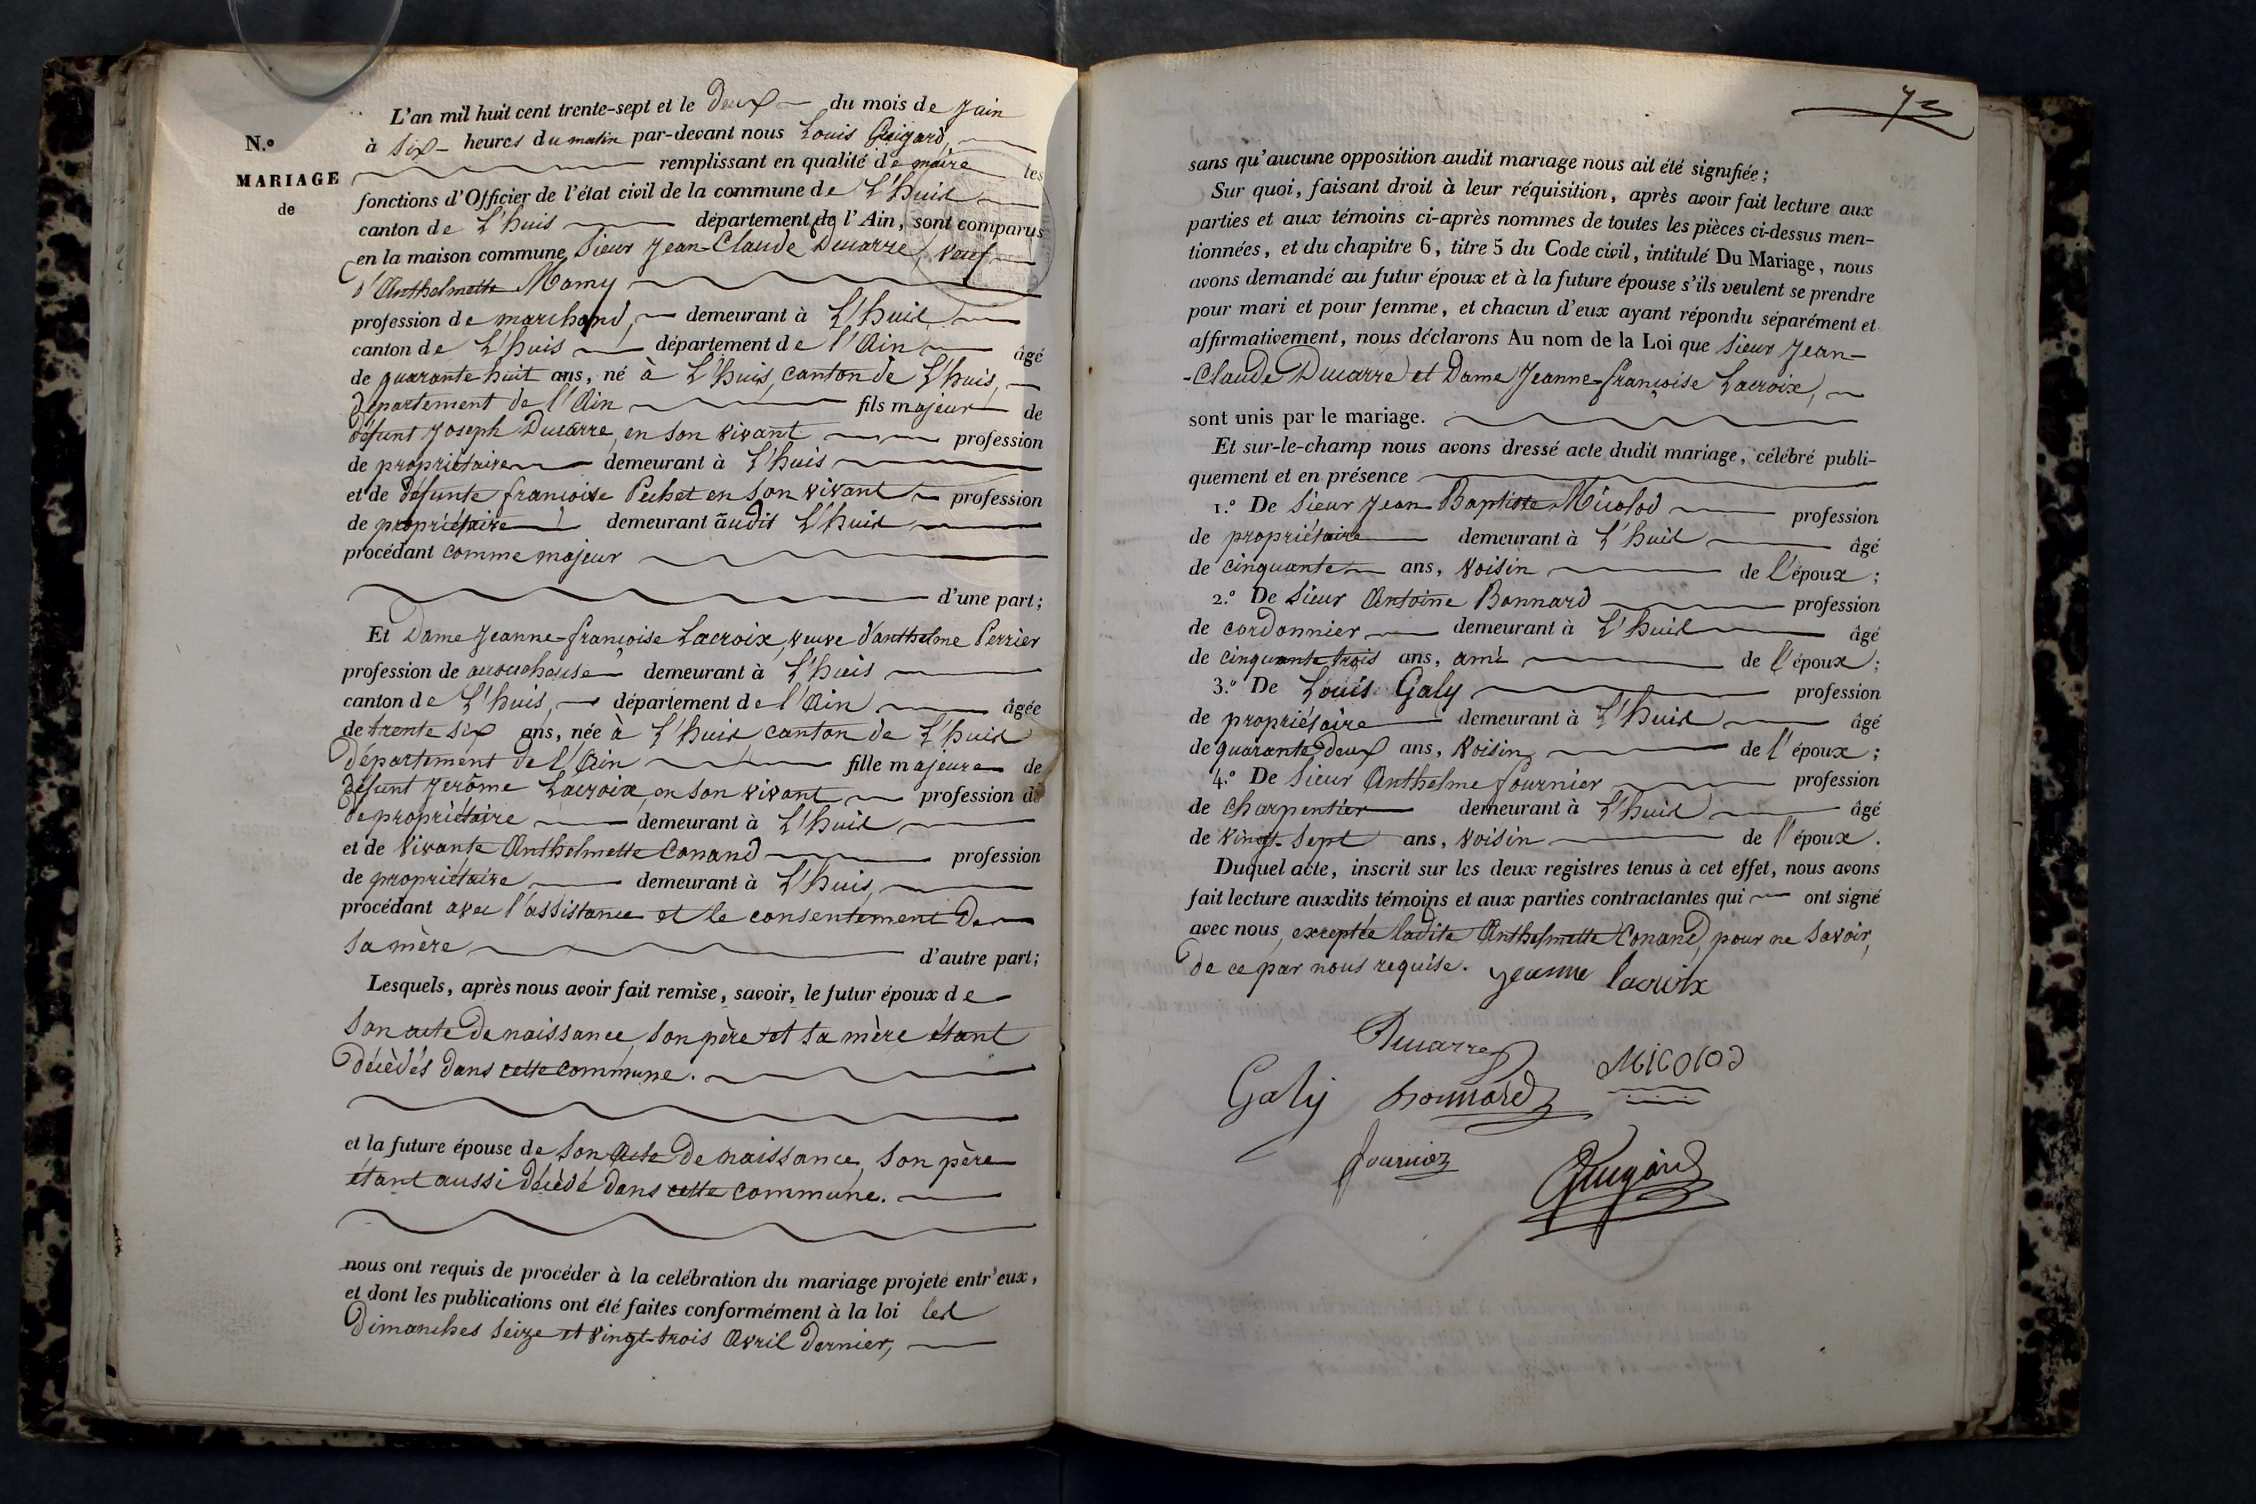 L'an mil huit cent trente-sept et le deux du mois de Juin
à six heures du matin par-devant nous Louis Guigard,
remplissant en qualité de maire les
fonctions d'Officier de l'état civil de la commune de L'huis
canton de L'huis département de l'Ain, sont comparus
en la maison commune Sieur Jean-Claude Ducarre, veuf
d'Anthelmette Mamy
profession de marchand, demeurant à L'huis,
canton de L'huis département de l'Ain âgé
de quarante-huit ans, né à L'huis, canton de L'huis,
département de l'Ain fils majeur de
défunt Joseph Ducarre, en son vivant profession
de propriétaire demeurant à L'huis
et de défunte françoise Pechet en son vivant profession
de propriétaire demeurant audit L'huis
procédant comme majeur
d'une part;
Et Dame Jeanne-françoise Lacroix, veuve d'anthelme Perrier
profession de accoucheuse demeurant à L'huis
canton de L'huis, département de l'Ain âgée
de trente six ans, née à L'huis canton de L'huis
Département de l'Ain fille majeure de
défunt Jerôme Lacroix, en son vivant profession de
de propriétaire demeurant à L'huis
et de vivante Anthelmette Conand profession
de propriétaire demeurant à L'huis,
procédant avec l'assistance et le consentement de
sa mère d'autre part;
Lesquels, après nous avoir fait remise, savoir, le futur époux de
son acte de naissance, son père et sa mère étant
décédés dans cette commune.
et la future épouse de son acte de naissance, son père
étant aussi décédé dans cette commune.
nous ont requis de procéder à la celébration du mariage projeté entr'eux,
et dont les publications ont été faites conformément à la loi les
Dimanches seize et vingt-trois Avril dernier,
N.°
MARIAGE
de
72
sans qu'aucune opposition audit mariage nous ait été signifiée;
Sur quoi, faisant droit à leur réquisition, après avoir fait lecture aux
parties et aux témoins ci-après nommes de toutes les pièces ci-dessus men-
tionnées, et du chapitre 6, titre 5 du Code civil, intitulé Du Mariage, nous
avons demandé au futur époux et à la future épouse s'ils veulent se prendre
pour mari et pour femme, et chacun d'eux ayant répondu séparément et
affirmativement, nous déclarons Au nom de la Loi que sieur Jean-
-Claude Ducarre et Dame Jeanne-françoise Lacroix,
sont unis par le mariage.
Et sur-le-champ nous avons dressé acte dudit mariage, célébré publi-
quement et en présence
1.° De Sieur Jean Baptiste Micolod profession
de propriétaire demeurant à L'huis âgé
de cinquante ans, voisin de l'époux;
2.° De Sieur Antoine Bonnard profession
de cordonnier demeurant à L'huis âgé
de cinquante trois ans, ami de l'époux;
3.° De Louis Galy profession
de propriétaire demeurant à L'huis âgé
de quarante deux ans, voisin, de l'époux;
4.° De Sieur Anthelme fournier profession
de charpentier demeurant à L'huis âgé
de vingt-sept ans, voisin de l'époux.
Duquel acte, inscrit sur les deux registres tenus à cet effet, nous avons
fait lecture auxdits témoins et aux parties contractantes qui ont signé
avec nous, exceptée ladite Anthelmette Conand, pour ne savoir,
de ce par nous requise. Jeanne lacroix
Ducarre
Micolod
Galy Bonnard
fournier
Guigard